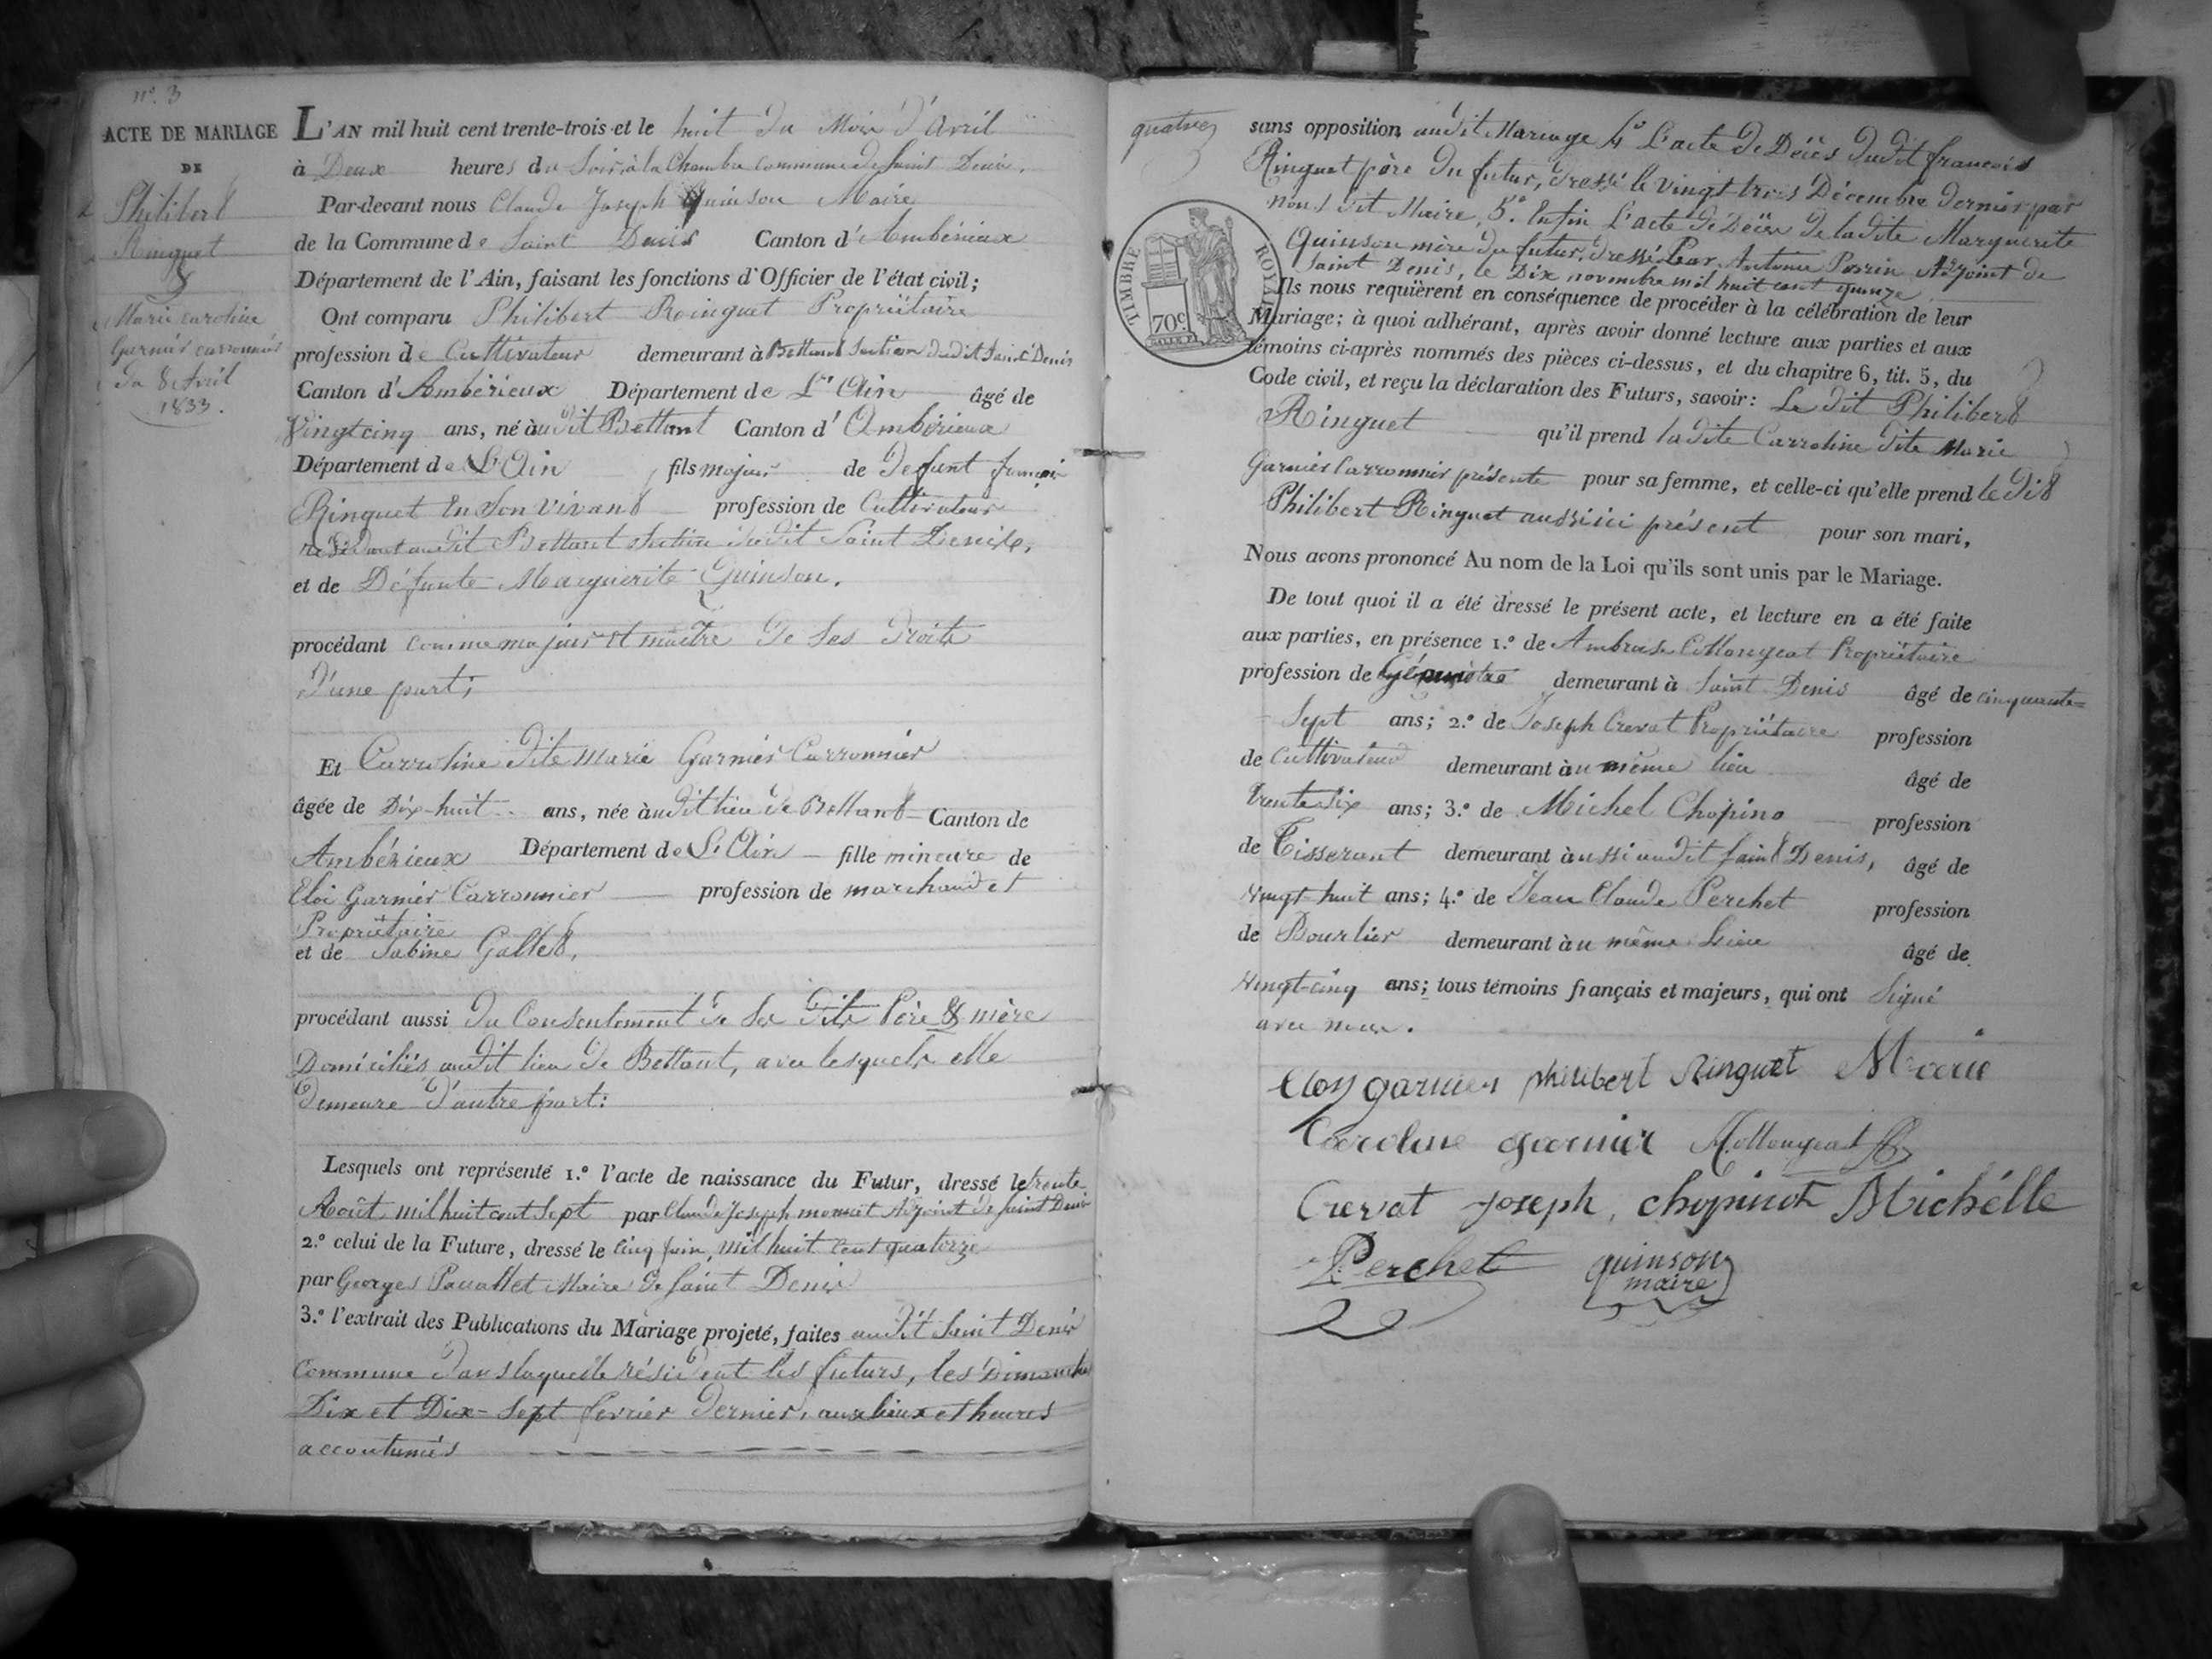 n.º 3
ACTE DE MARIAGE
DE
Philibert
Ringuet
&
Marie caroline
Garnier carronnier
du 8 Avril
1833.
L'AN mil huit cent trente-trois et le huit du Mois d'Avril
à Deux heures du Soir à la Chambre commune de Saint Denis.
Par-devant nous Claude Joseph Quinson Maire
de la Commune de Saint Denis Canton d'Ambérieux
Département de l'Ain, faisant les fonctions d'Officier de l'état civil;
Ont comparu Philibert Ringuet Propriétaire
profession de Cultivateur demeurant à Bettant Section dudit Saint Denis
Canton d'Ambérieux Département de L'Ain âgé de
Vingt cinq ans, né audit Bettant Canton d'Ambérieux
Département de L'Ain fils majeur de Defunt françois
Ringuet En Son vivant profession de Cultivateur
résidant audit Bettant Section dudit Saint Denis,
et de Défunte Marguerite Quinson.
procédant comme majeur et maître de Ses Droits
D'une part;
Et Carroline dite Marie Garnier Carronnier
âgée de Dix-huit ans, née audit lieu de Bettant Canton de
Ambérieux Département de L'Ain fille mineure de
Eloi Garnier Carronnier profession de marchand et
Propriétaire
et de Sabine Gallet,
procédant aussi du Consentement de Ses dits Père & mère
Domiciliés audit lieu de Bettant, avec lesquels elle
Demeure D'autre part:
Lesquels ont représenté 1.º l'acte de naissance du Futur, dressé le trente
Août mil huit cent Sept par Claude Joseph monnet Adjoint de Saint Denis
2.º celui de la Future, dressé le Cinq juin, mil huit Cent quatorze
par Georges Maire de Saint Denis
3.º l'extrait des Publications du Mariage projeté, faites audit Saint Denis
Commune dans laquelle résident les futurs, les Dimanches
Dix et Dix-Sept fevrier dernier, aux lieux et heures
accoutumés
quatre
TIMBRE ROYAL
70 c.
sans opposition audit Mariage 4º L'acte de Décès dudit françois
Ringuet père du futur, dressé le vingt trois Décembre dernier par
nous dit Maire, 5.º Enfin L'acte de Décès de ladite Marguerite
Quinson mère du futur, dressé Par Antoine Perrin Adjoint de
Saint Denis, le Dix novembre mil huit cent quinze
Ils nous requièrent en conséquence de procéder à la célébration de leur
Mariage; à quoi adhérant, après avoir donné lecture aux parties et aux
témoins ci-après nommés des pièces ci-dessus, et du chapitre 6, tit. 5, du
Code civil, et reçu la déclaration des Futurs, savoir: Le dit Philibert
Ringuet qu'il prend ladite Carroline dite Marie
Garnier Carronnier présente pour sa femme, et celle-ci qu'elle prend le dit
Philibert Ringuet aussi ici présent pour son mari,
Nous avons prononcé Au nom de la Loi qu'ils sont unis par le Mariage.
De tout quoi il a été dressé le présent acte, et lecture en a été faite
aux parties, en présence 1.º de Ambroise Collongeat Propriétaire
profession de Géomètre demeurant à Saint Denis âgé de cinquante=
Sept ans; 2.º de Joseph Crevat Propriétaire profession
de Cultivateur demeurant au même lieu âgé de
trente Six ans; 3.º de Michel Chopino profession
de Tisserant demeurant aussi audit Saint Denis, âgé de
Vingt-huit ans; 4.º de Jean Claude Perchet profession
de Bourlier demeurant au même Lieu âgé de
Vingt-cinq ans; tous témoins français et majeurs, qui ont Signé
avec nous.
Eloy garnier philibert Ringuet Marie
Caroline garnier A. Collongeat
Crevat Joseph, chopinot Michélle
Perchet quinson
maire